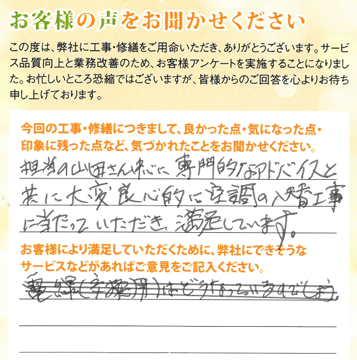 お客様の声をお聞かせください
この度は、弊社に工事・修繕をご用命いただき、ありがとうございます。サービ
ス品質向上と業務改善のため、お客様アンケートを実施することになりまし
た。お忙しいところ恐縮ではございますが、皆様からのご回答を心よりお待ち
申し上げております。
今回の工事・修繕につきまして、良かった点・気になった点・
印象に残った点など、気づかれたことをお聞かせください。
担当の山田さん中心に専門的なアドバイスと
共に大変良心的に空調の入替工事
に当たっていただき、満足しています。
お客様により満足していただくために、弊社にできそうな
サービスなどがあればご意見をご記入ください。